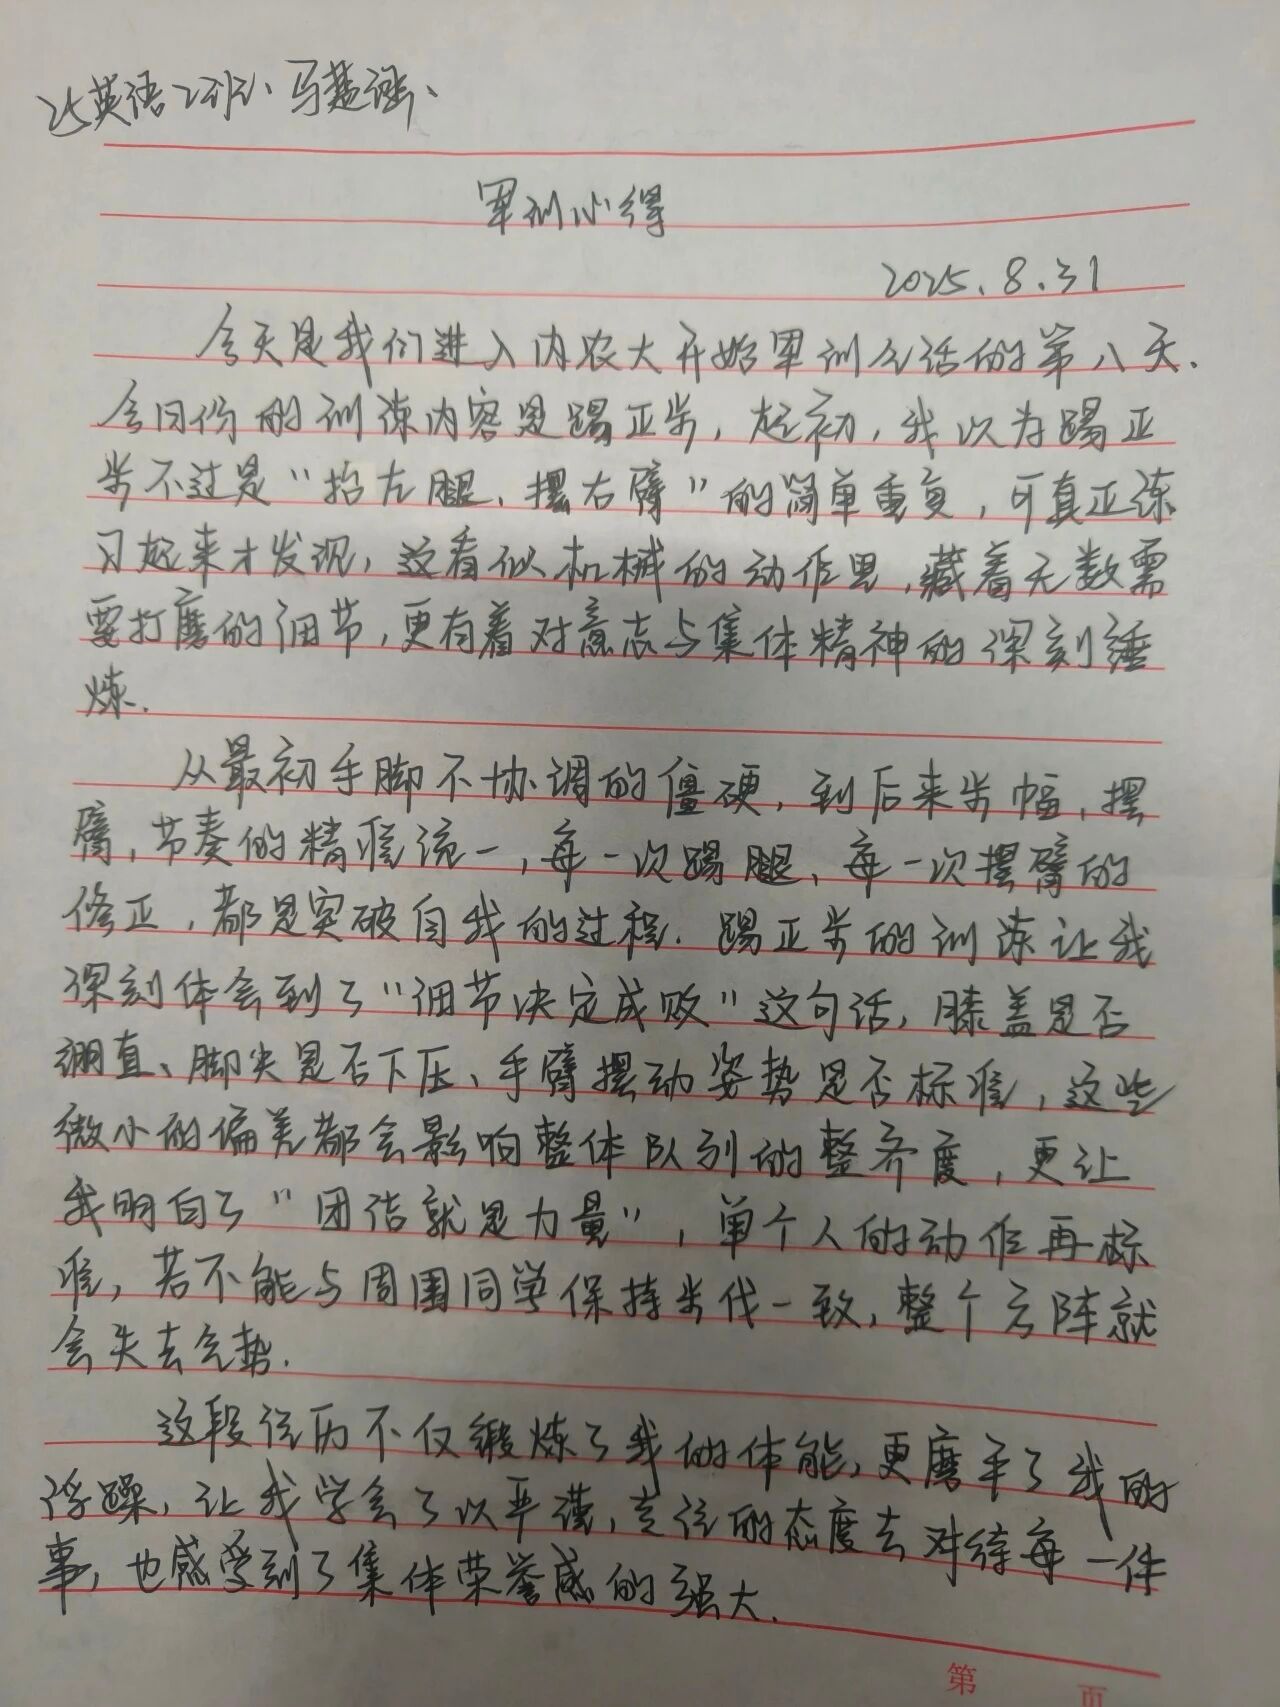 25英语2班、马楚涵、
军训心得
2025.8.31
今天是我们进入内农大开始军训生活的第八天.
今日份的训练内容是踢正步,起初,我以为踢正
步不过是“抬左腿、摆右臂”的简单重复,可真正练
习起来才发现,这看似机械的动作里,藏着无数需
要打磨的细节,更有着对意志与集体精神的深刻锤
炼.
从最初手脚不协调的僵硬,到后来步幅,摆
臂,节奏的精准统一,每一次踢腿、每一次摆臂的
修正,都是突破自我的过程.踢正步的训练让我
深刻体会到了“细节决定成败”这句话,膝盖是否
绷直、脚尖是否下压、手臂摆动姿势是否标准,这些
微小的偏差都会影响整体队列的整齐度,更让
我明白了“团结就是力量”,单个人的动作再标
准,若不能与周围同学保持步伐一致,整个方阵就
会失去气势.
这段经历不仅锻炼了我的体能,更磨平了我的
浮躁,让我学会了以严谨,专注的态度去对待每一件
事,也感受到了集体荣誉感的强大.
第 页